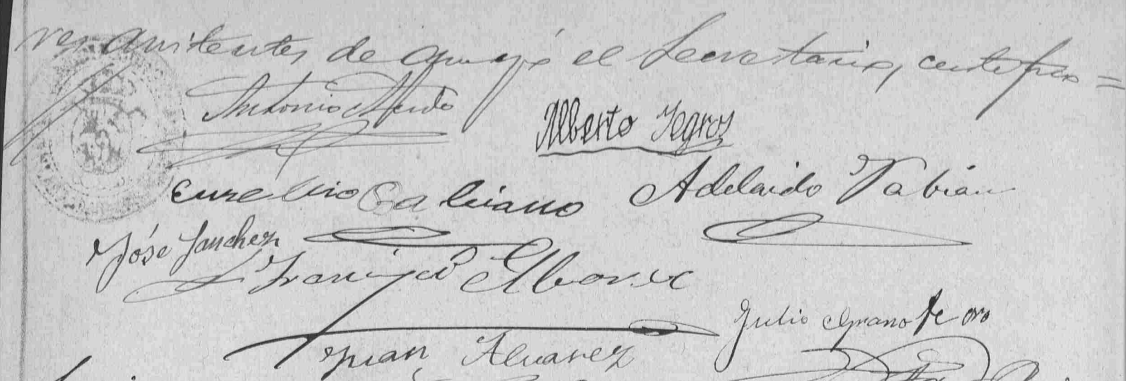 res asistentes de que yo el Secretario, certifico =
Antonio
Alberto Negros
Galiano Adelaido Fabian
José Sanchez
Francisco Alvarez
Julio Grano de oro
Juan Alvarez